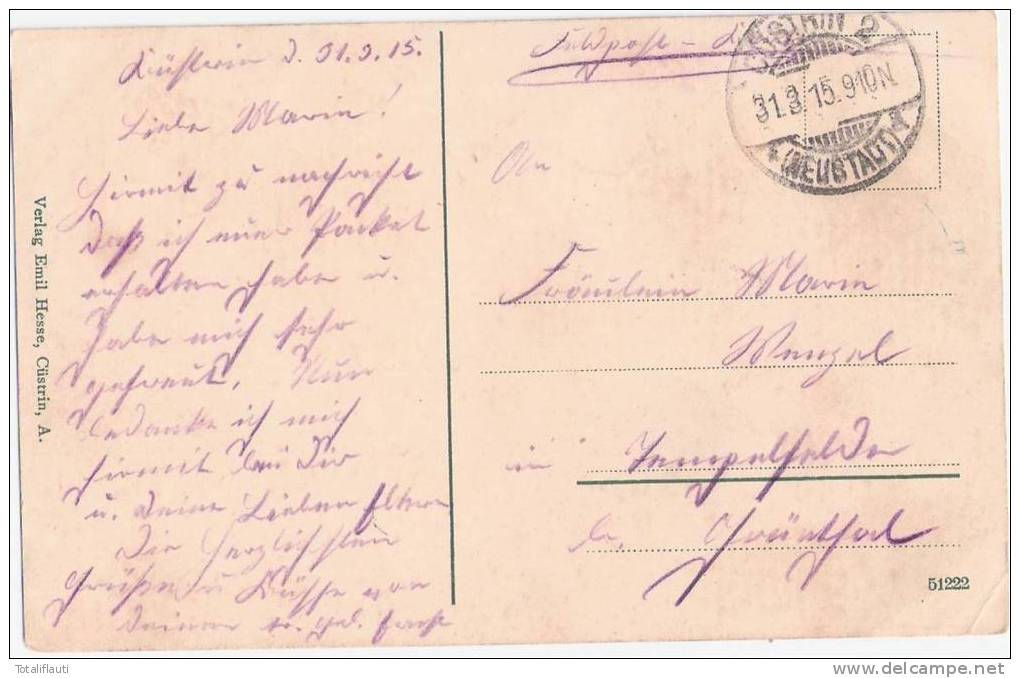 Küstrin d. 31.3.15.
Liebe Marie!
Hirmit zu nachricht
daß ich euer Packet
erhalten habe u.
habe mich sehr
gefreut. Nun
bedanke ich mich
hirmit bei Dir
u. deine Lieben Eltern
Die Herzlichsten
Grüße u Küsse von
Deinem
Feldpost -
CÜSTRIN 2
31.3.15.9-10N.
(NEUSTADT)
An
Fräulein Marie
Wenzel
in Tempelfelde
b. Grünthal
51222
Verlag Emil Hesse, Cüstrin, A.
Totaliflauti
www.delcampe.net